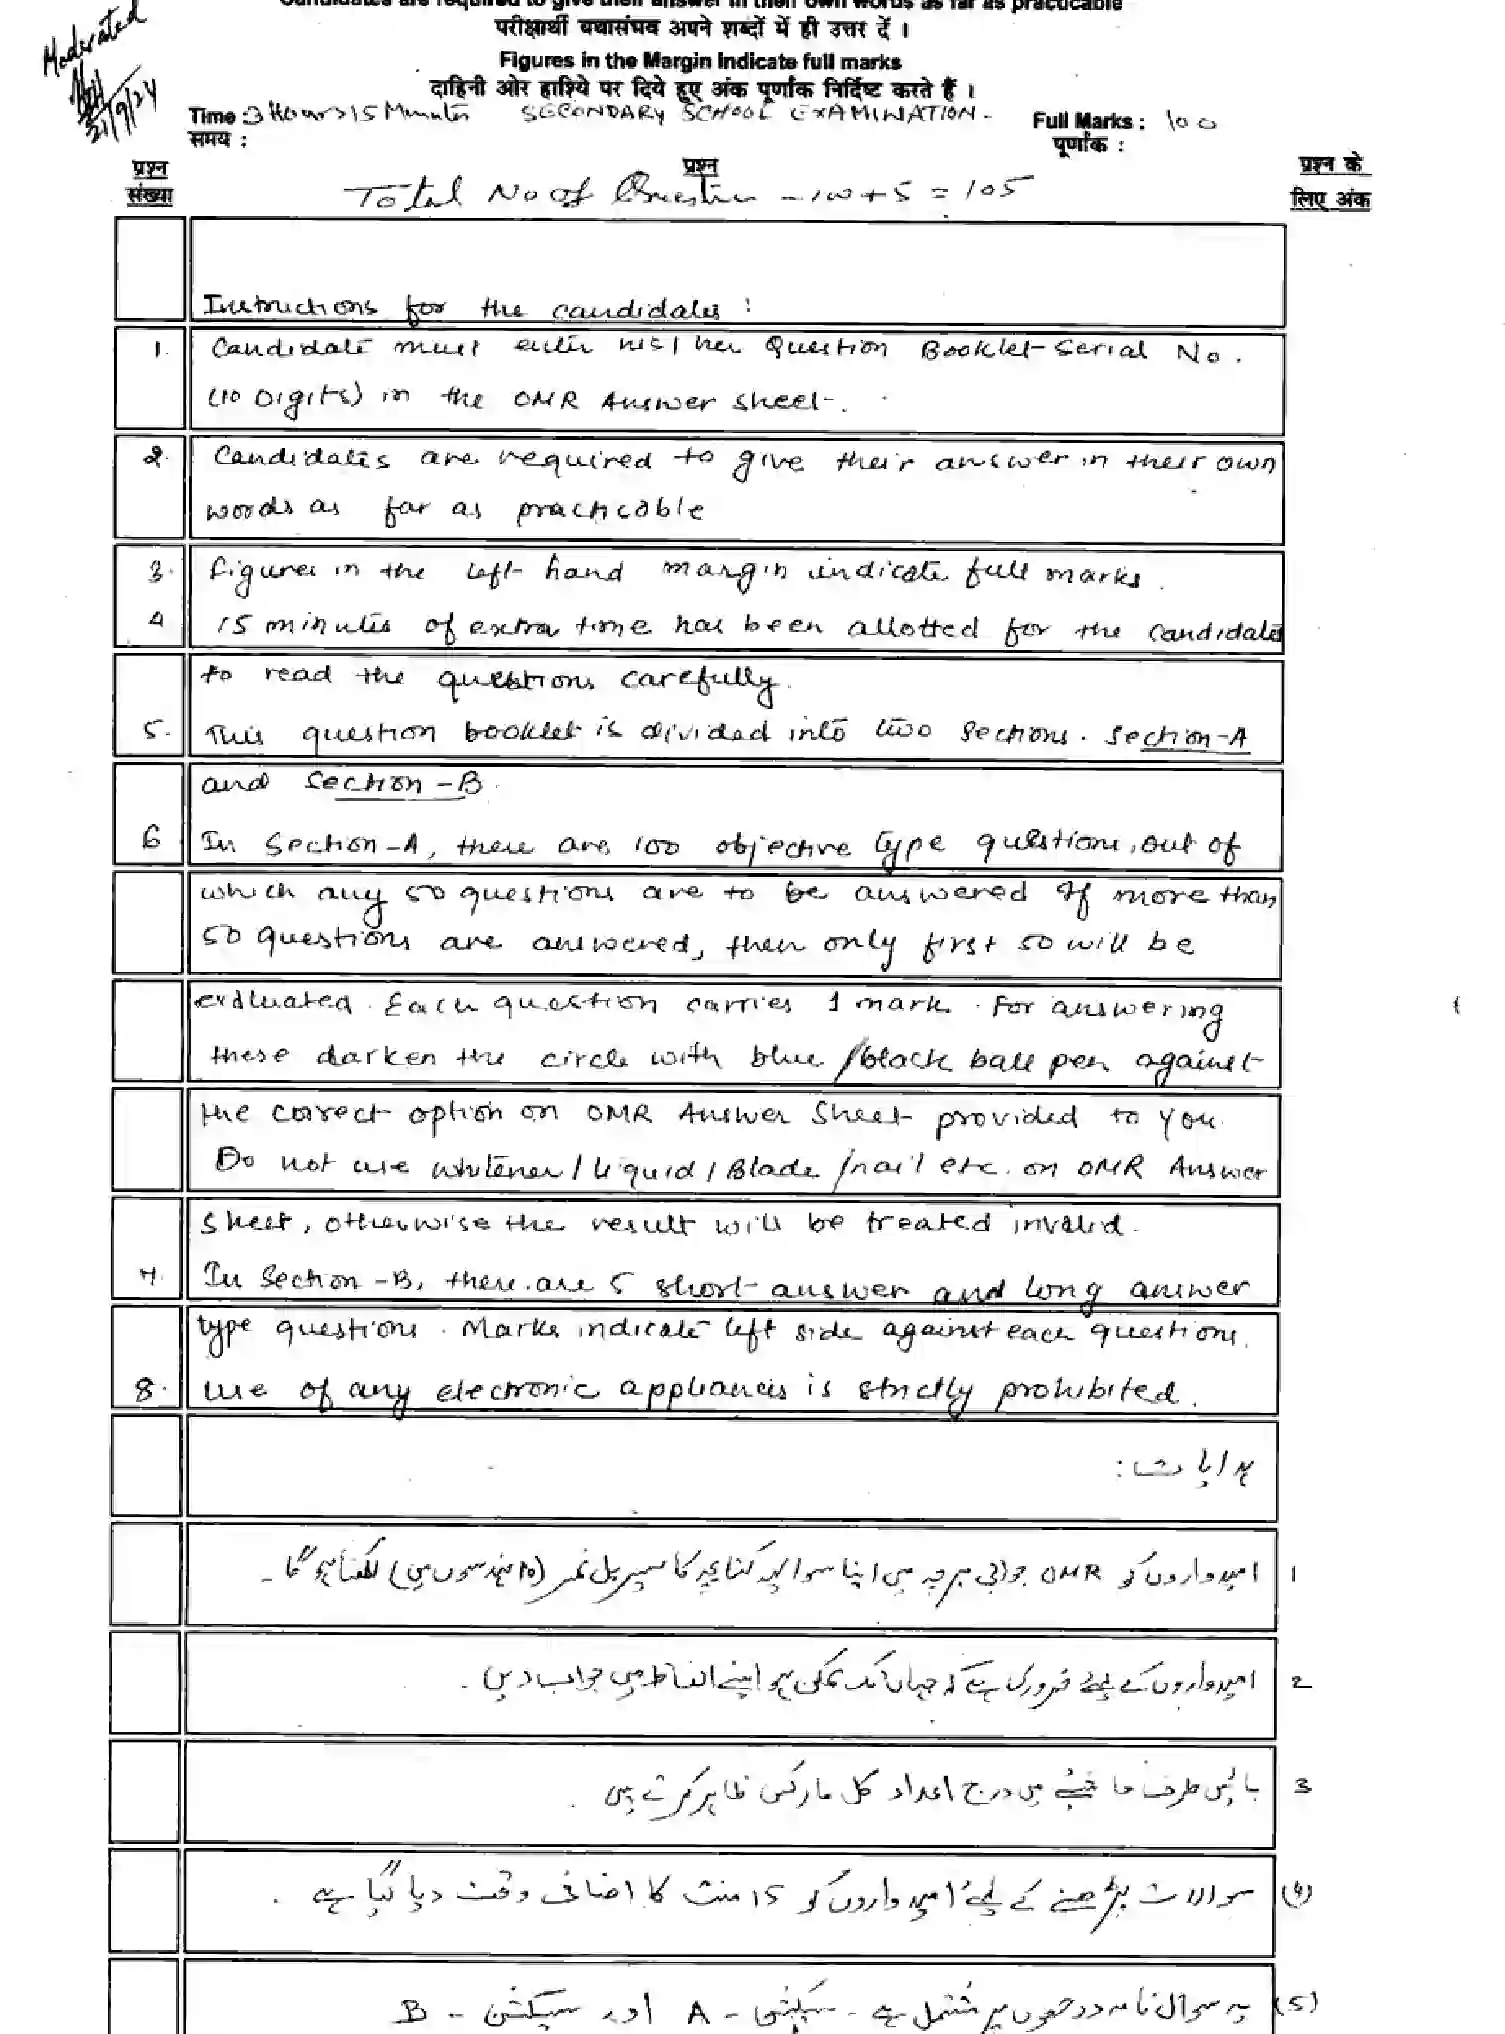 Candidates are required to give their answer in their own words as far as practicable
परीक्षार्थी यथासंभव अपने शब्दों में ही उत्तर दें ।
Figures in the Margin indicate full marks
दाहिनी ओर हाशिये पर दिये हुए अंक पूर्णांक निर्दिष्ट करते हैं ।
Moderated
21/9/24
Time : 3 Hours 15 Minutes SECONDARY SCHOOL EXAMINATION - Full Marks : 100
समय : पूर्णांक :
प्रश्न संख्या प्रश्न प्रश्न के लिए अंक
Total No of Question - 100 + 5 = 105
Instructions for the candidates :
1. Candidate must enter his/her Question Booklet Serial No.
(10 Digits) in the OMR Answer sheet.
2. Candidates are required to give their answer in their own
words as far as practicable
3. figures in the left hand margin indicate full marks.
4 15 minutes of extra time has been allotted for the candidates
to read the questions carefully.
5. This question booklet is divided into two sections. Section-A
and Section-B.
6 In Section-A, there are 100 objective type questions, out of
which any 50 questions are to be answered If more than
50 questions are answered, then only first 50 will be
evaluated. Each question carries 1 mark. For answering
these darken the circle with blue/black ball pen against
the correct option on OMR Answer Sheet provided to you.
Do not use whitener/liquid/Blade/nail etc. on OMR Answer
sheet, otherwise the result will be treated invalid.
7. In Section-B, there are 5 short answer and long answer
type questions. Marks indicate left side against each questions.
8. Use of any electronic appliances is strictly prohibited.
ہدایات :
1 امیدواروں کو OMR جوابی پرچہ میں اپنا سوالیہ کتابچہ کا سیریل نمبر (۱۰ ہندسوں میں) لکھنا ہوگا ۔
2 امیدواروں کے لئے ضروری ہے کہ جہاں تک ممکن ہو اپنے الفاظ میں جواب دیں ۔
3 بائیں طرف حاشیے میں درج اعداد کل مارکس ظاہر کرتے ہیں ۔
(4) سوالات پڑھنے کے لئے امیدواروں کو 15 منٹ کا اضافی وقت دیا گیا ہے ۔
(5) یہ سوال نامہ دو حصوں پر مشتمل ہے ۔ سیکشن - A اور سیکشن - B